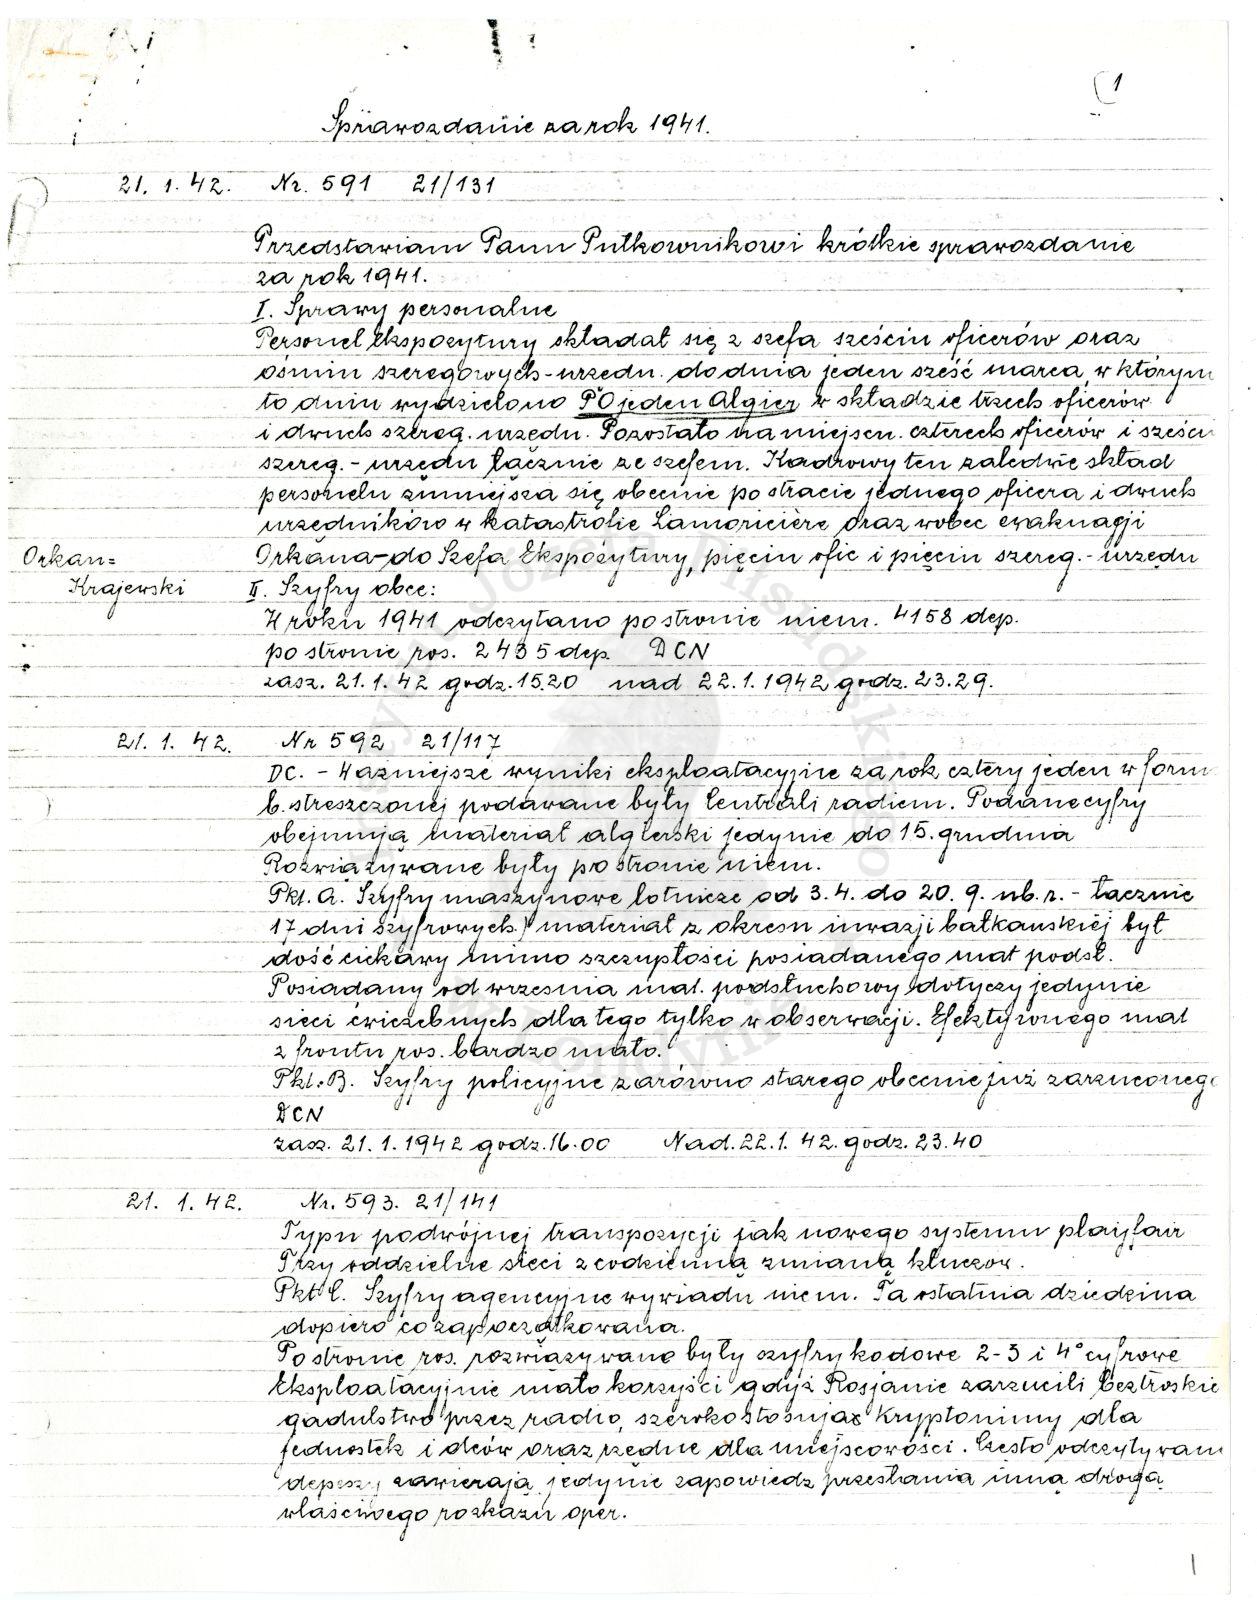 1
Sprawozdanie za rok 1941.
21. 1. 42. Nr. 591 21/131
Przedstawiam Panu Pułkownikowi krótkie sprawozdanie
za rok 1941.
I. Sprawy personalne
Personel Ekspozytury składał się z szefa sześciu oficerów oraz
ośmiu szeregowych-urzędn. do dnia jeden sześć marca, w którym
to dniu wydzielono PO jeden Algier w składzie trzech oficerów
i dwuch szereg. urzędn. Pozostało na miejscu. czterech oficerów i sześciu
szereg. - urzędn łącznie ze szefem. Kadrowy ten zaledwie skład
personelu zmniejsza się obecnie po stracie jednego oficera i dwuch
urzędników w katastrofie Lamoricière oraz wobec ewakuacji
Orkana-do Szefa Ekspozytury, pięciu ofic i pięciu szereg. - urzędn
Orkan=
Krajewski
II. Szyfry obce:
W roku 1941 odczytano po stronie niem. 4158 dep.
po stronie ros. 2435 dep. DCN
zasz. 21.1.42 godz. 15.20 nad 22.1.1942 godz. 23.29.
21. 1. 42. Nr 592 21/117
DC. - Ważniejsze wyniki eksploatacyjne za rok cztery jeden w form
b. streszczonej podawane były Centrali radiem. Podane cyfry
obejmują materiał algierski jedynie do 15. grudnia
Rozwiązywane były po stronie niem.
Pkt. A. Szyfry maszynowe lotnicze od 3.4. do 20.9. ub.r. - łącznie
17 dni szyfrowych) materiał z okresu inwazji bałkańskiej był
dość ciekawy mimo szczupłości posiadanego mat podsł.
Posiadany od września mat. podsłuchowy dotyczy jedynie
sieci ćwiczebnych dlatego tylko w obserwacji. Efektywnego mat
z frontu ros. bardzo mało.
Pkt. B. Szyfry policyjne zarówno starego obecnie już zarzuconego
DCN
zasz. 21.1.1942 godz. 16.00 Nad. 22.1.42. godz. 23.40
21. 1. 42. Nr. 593. 21/141
Typu podwójnej transpozycji jak nowego systemu playfair
Trzy oddzielne sieci z codzienną zmianą kluczow.
Pkt C. Szyfry agencyjne wywiadu niem. Ta ostatnia dziedzina
dopiero co zapoczątkowana.
Po stronie ros. rozwiązywane były szyfry kodowe 2-3 i 4° cyfrowe
Eksploatacyjnie mało korzyści gdyż Rosjanie zarzucili beztroskie
gadulstwo przez radio, szeroko stosując kryptonimy dla
jednostek i dców oraz rzędne dla miejscowości. Często odczytywane
depeszy zawierają jedynie zapowiedz przesłania inną drogą
właściwego rozkazu oper.
1